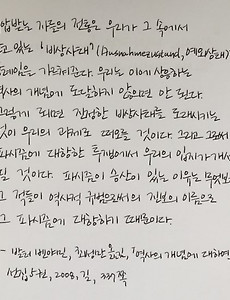 압받는 자들의 전통은 우리가 그 속에서
고 있는 '비상사태'(Ausnahmezustand, 예외상태)
상례임을 가르쳐준다. 우리는 이에 상응하는
역사의 개념에 도달하지 않으면 안 된다.
그렇게 되면 진정한 비상사태를 도래시키는
것이 우리의 과제로 떠오를 것이다. 그리고 그로써
파시즘에 대항한 투쟁에서 우리의 입지가 개선
될 것이다. 파시즘이 승산이 있는 이유는 무엇보
그 적들이 역사적 규범으로서의 진보의 이름으로
그 파시즘에 대항하기 때문이다.
- 발터 벤야민, 최성만 옮김, 「역사의 개념에 대하여
선집 5권, 2008, 길, 337쪽